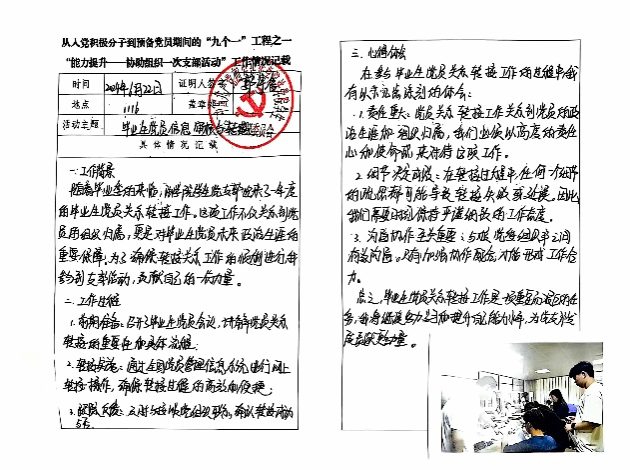 从入党积极分子到预备党员期间的“九个一”工程之一
“能力提升——协助组织一次支部活动”工作情况记载
时间 2024年6月22日 证明人签字
地点 1116 盖章
活动主题 毕业生党员信息审核与转接
具体情况汇报
一、工作背景
随着毕业季的来临，
的毕业生党员关系转接工作。这项工作不仅关系到党
员的组织归属，更是对毕业生党员未来政治生涯的
重要保障。为了确保转接关系工作的顺利进行，
参与到支部活动，贡献自己的一份力量。
二、工作过程
1. 前期准备：召开毕业生党员会议，讲解党员关系
转接的重要性和具体流程；
2. 转接实施：通过全国党员管理信息系统进行网上
转接操作，确保转接过程的高效和便捷；
3.
三、心得体会
在参与毕业生党员关系转接工作的过程中，我
有以下几点深刻的体会：
1. 责任重大：党员关系转接工作关系到党员的政
治生涯和组织归属，我们必须以高度的责任
心和使命感来对待这项工作。
2. 细节决定成败：在转接过程中，任何一个细节
的疏忽都可能导致转接失败或延误。因此，
我们需要时刻保持严谨细致的工作态度。
3. 沟通协作至关重要：与成员党组织之间
有效沟通，只有加强协作配合，才能形成工作合
力。
总之，毕业生党员关系转接工作是一项重要而艰巨的任
务，我将继续努力学习和提升自己的能力水平，为
贡献更多力量。